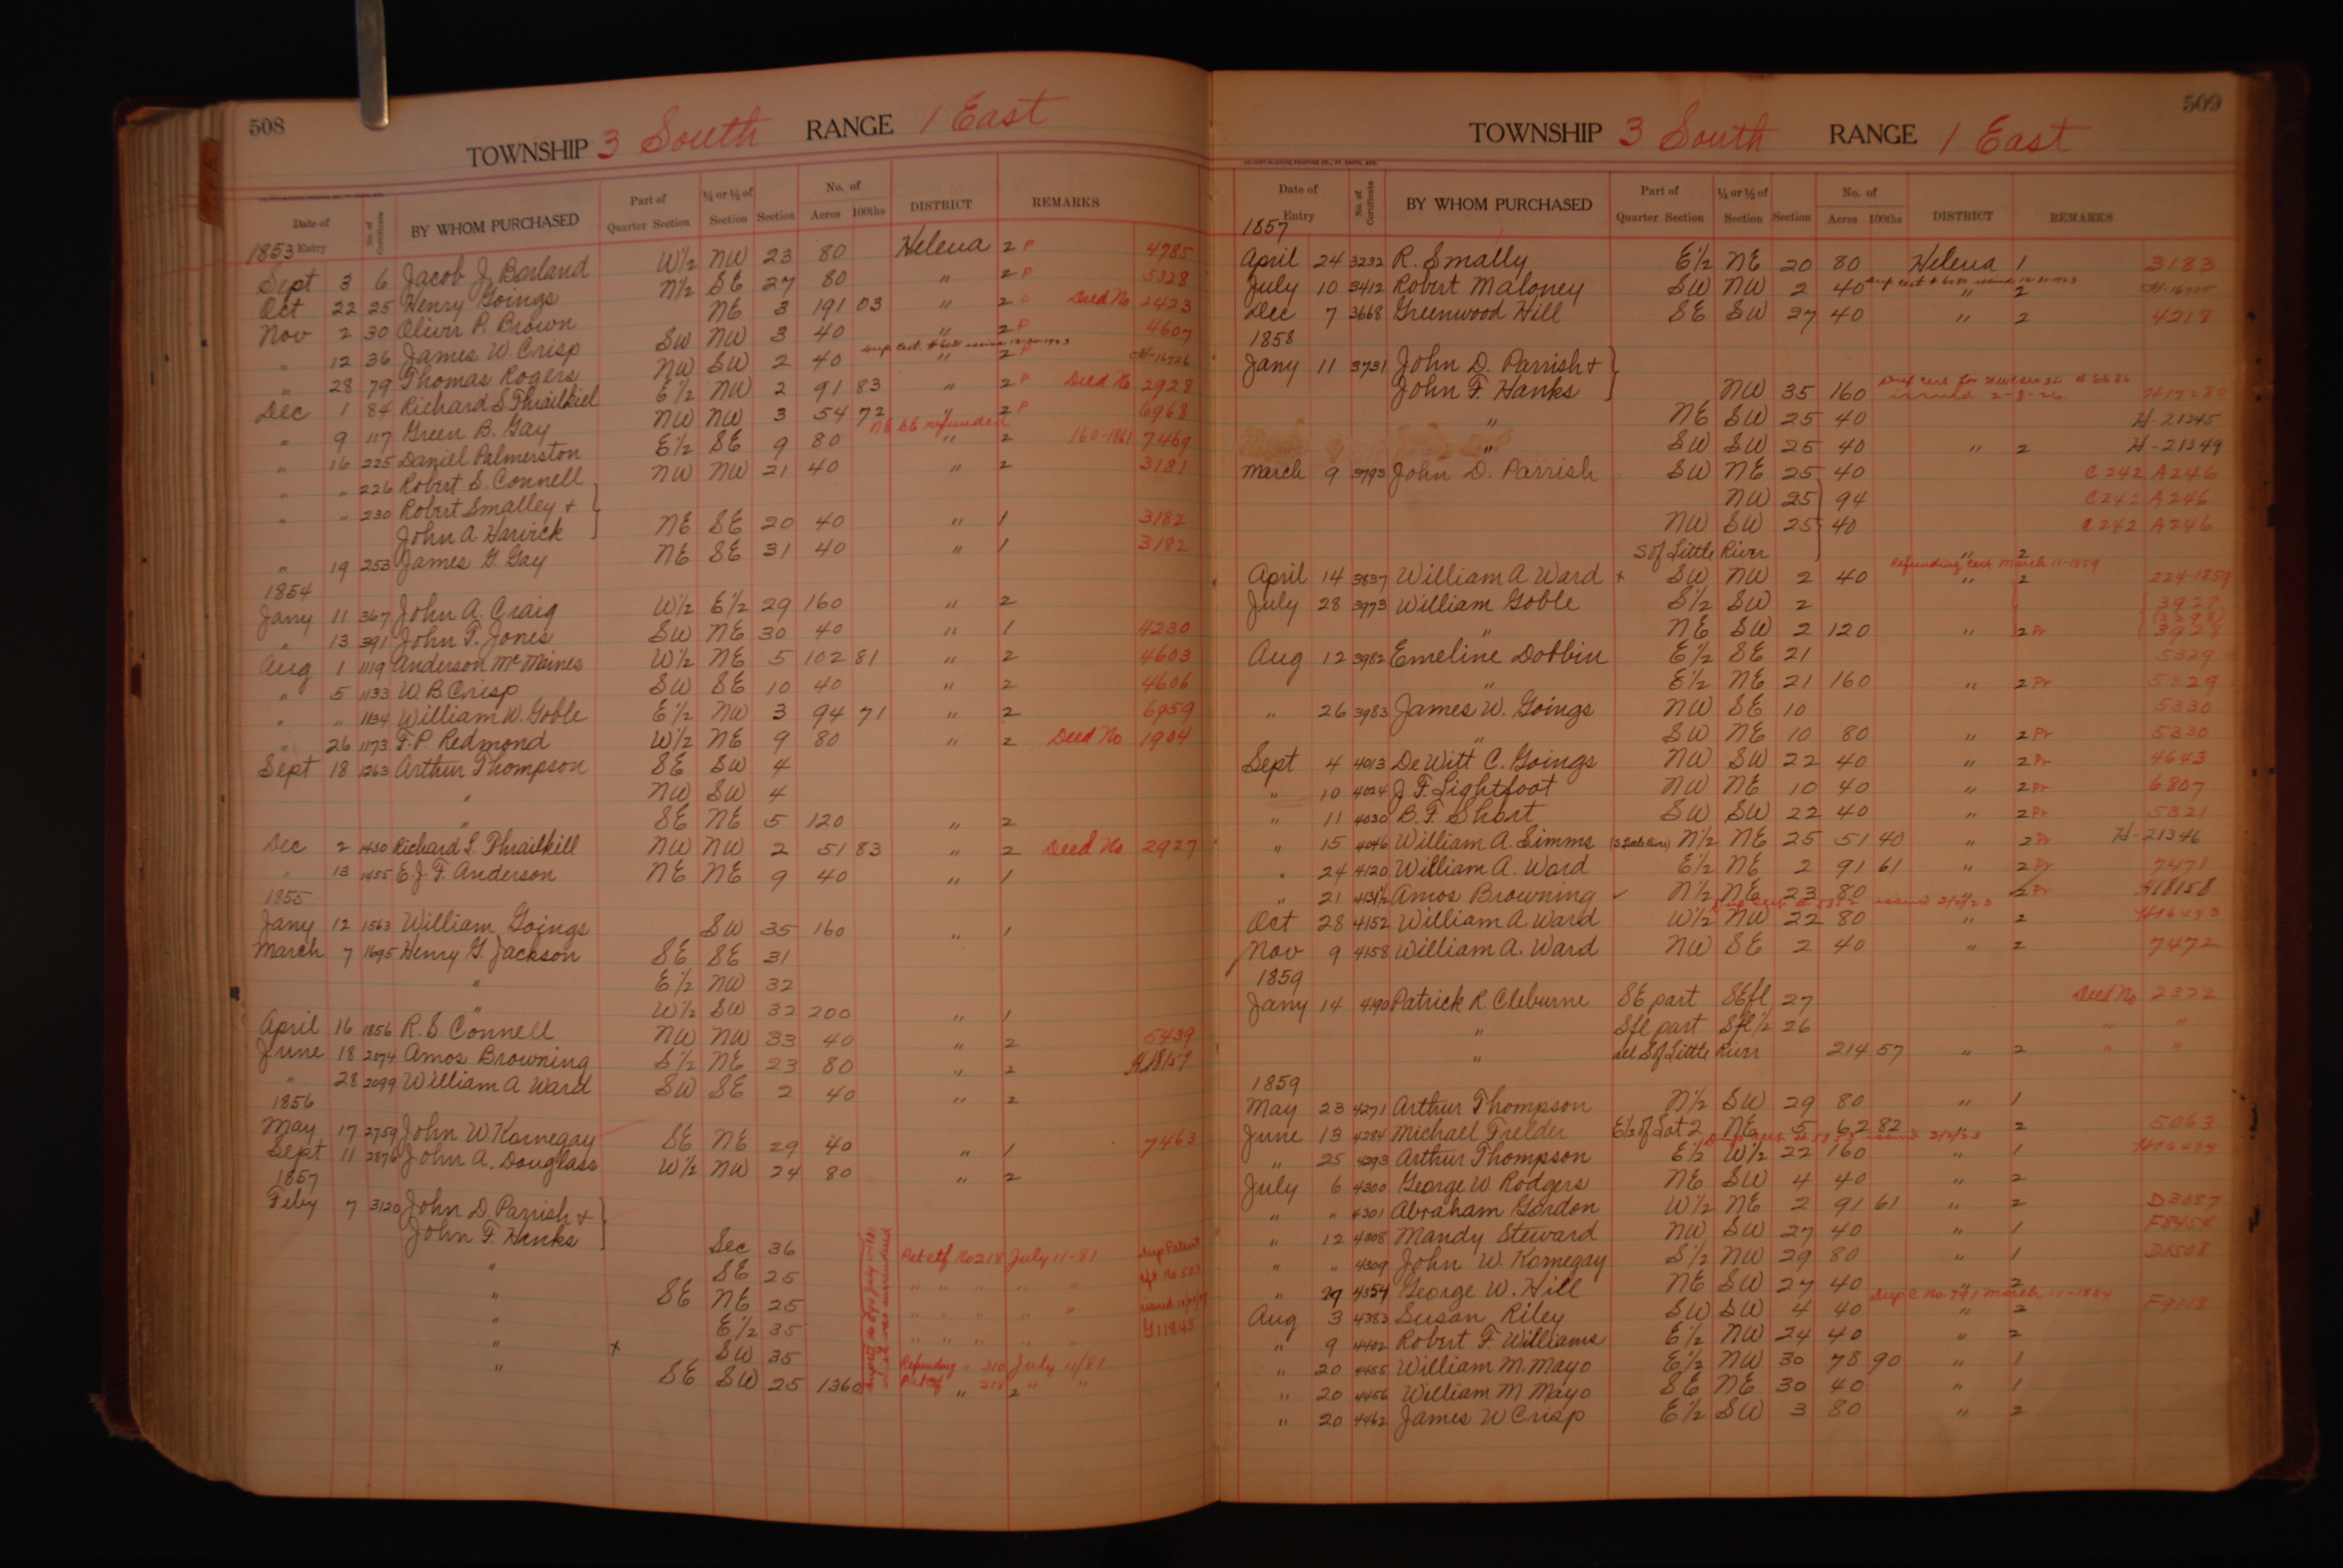 508
TOWNSHIP 3 South RANGE 1 East
Date of Entry No. of Certificate BY WHOM PURCHASED Part of Quarter Section ¼ or ½ of Section Section No. of Acres 100ths DISTRICT REMARKS
1853
Sept 3 6 Jacob J. Borland W½ NW 23 80 Helena 2 P 4785
Oct 22 25 Henry Goings N½ SE 27 80 " 2 P 5328
Nov 2 30 Oliver P. Brown NE 3 191 03 " 2 P Deed No 2423
" 12 36 James W. Crisp SW NW 3 40 " 2 P 4607
" 28 79 Thomas Rogers NW SW 2 40 " 2 P H-16726
Dec 1 84 Richard S. Thrailkiel E½ NW 2 91 83 " 2 P Deed No 2928
" 9 117 Green B. Gay NW NW 3 54 72 " 2 P 6968
NE SE refunded
" 16 225 Daniel Palmerston E½ SE 9 80 " 2 160-1861 7469
" " 226 Robert S. Connell NW NW 21 40 " 2 3181
" " 230 Robert Smalley +
John A. Harvick NE SE 20 40 " 1 3182
" 19 253 James G. Gay NE SE 31 40 " 1 3182
1854
Jany 11 367 John A. Craig W½ E½ 29 160 " 2
" 13 391 John T. Jones SW NE 30 40 " 1 4230
Aug 1 1119 Anderson McMaines W½ NE 5 102 81 " 2 4603
" 5 1133 W. B. Crisp SW SE 10 40 " 2 4606
" " 1134 William W. Goble E½ NW 3 94 71 " 2 6959
" 26 1173 F. P. Redmond W½ NE 9 80 " 2 Deed No 1904
Sept 18 1263 Arthur Thompson SE SW 4
" NW SW 4
" SE NE 5 120 " 2
Dec 2 1430 Richard S. Thrailkill NW NW 2 51 83 " 2 Deed No 2927
" 13 1455 E. J. F. Anderson NE NE 9 40 " 1
1855
Jany 12 1563 William Goings SW 35 160 " 1
March 7 1695 Henry G. Jackson SE SE 31
" E½ NW 32
" W½ SW 32 200 " 1
April 16 1856 R. S. Connell NW NW 33 40 " 2 5439
June 18 2074 Amos Browning S½ NE 23 80 " 2 H18157
" 28 2099 William A Ward SW SE 2 40 " 2
1856
May 17 2759 John W. Kornegay SE NE 29 40 " 1 7463
Sept 11 2876 John A. Douglass W½ NW 24 80 " 2
1857
Feby 7 3120 John D. Parrish +
John F. Hanks Sec 36 Pat ctf No 218 July 11-81 Dup Patent
" SE 25 " " " " "
" SE NE 25 " " " " "
" E½ 35 " " " " " G11845
" x SW 35 Refunding " 310 July 11/81
" SE SW 25 1360 Pat ctf " 218 2 " "
509
TOWNSHIP 3 South RANGE 1 East
Date of Entry No. of Certificate BY WHOM PURCHASED Part of Quarter Section ¼ or ½ of Section Section No. of Acres 100ths DISTRICT REMARKS
1857
April 24 3232 R. Smally E½ NE 20 80 Helena 1 3183
July 10 3412 Robert Maloney SW NW 2 40 " 2
Dec 7 3668 Greenwood Hill SE SW 27 40 " 2 4218
1858
Jany 11 3731 John D. Parrish +
John F. Hanks NW 35 160 issued 2-8-26 H17280
" NE SW 25 40 H-21345
" SW SW 25 40 " 2 H-21349
March 9 3793 John D. Parrish SW NE 25 40 C242 A246
NW 25 94 C242 A246
NW SW 25 40 C242 A246
S of Little River " 2
Refunding Cert March 11-1859
April 14 3837 William A Ward x SW NW 2 40 " 2 224-1859
July 28 3973 William Goble S½ SW 2 3928
" NE SW 2 120 " 2 Pr 3928
Aug 12 3982 Emeline Dobbin E½ SE 21 5329
" E½ NE 21 160 " 2 Pr 5329
" 26 3983 James W. Goings NW SE 10 5330
" SW NE 10 80 " 2 Pr 5330
Sept 4 4013 DeWitt C. Goings NW SW 22 40 " 2 Pr 4643
" 10 4024 J. F. Lightfoot NW NE 10 40 " 2 Pr 6807
" 11 4030 B. F. Short SW SW 22 40 " 2 Pr 5321
" 15 4046 William A. Simms (S Little River) N½ NE 25 51 40 " 2 Pr H-21346
" 24 4120 William A. Ward E½ NE 2 91 61 " 2 Pr 7471
" 21 4131½ Amos Browning ✓ N½ NE 23 80 " 2 Pr H18158
Oct 28 4152 William A. Ward W½ NW 22 80 " 2
Nov 9 4158 William A. Ward NW SE 2 40 " 2 7472
1859
Jany 14 4190 Patrick R. Cleburne SE part SEfl 27 Deed No 2322
" Sfl part Sfl½ 26 " "
" all S of Little River 214 57 " 2 " "
1859
May 23 4271 Arthur Thompson N½ SW 29 80 " 1
June 13 4284 Michael Frelder E½ of Lot 2 NE 5 62 82 " 2 5063
" 25 4293 Arthur Thompson E½ W½ 22 160 " 1
July 6 4300 George W. Rodgers NE SW 4 40 " 2
" " 4301 Abraham Gordon W½ NE 2 91 61 " 2 D3087
" 12 4308 Mandy Steward NW SW 27 40 " 1 F8454
" " 4309 John W. Kornegay S½ NW 29 80 " 1 D1508
" 29 4354 George W. Hill NE SW 27 40 " 2
Dup C No 791 March 11-1884
Aug 3 4383 Susan Riley SW SW 4 40 " 2 F9118
" 9 4402 Robert F. Williams E½ NW 24 40 " 2
" 20 4455 William M. Mayo E½ NW 30 78 90 " 1
" 20 4456 William M Mayo SE NE 30 40 " 1
" 20 4462 James W Crisp E½ SW 3 80 " 2